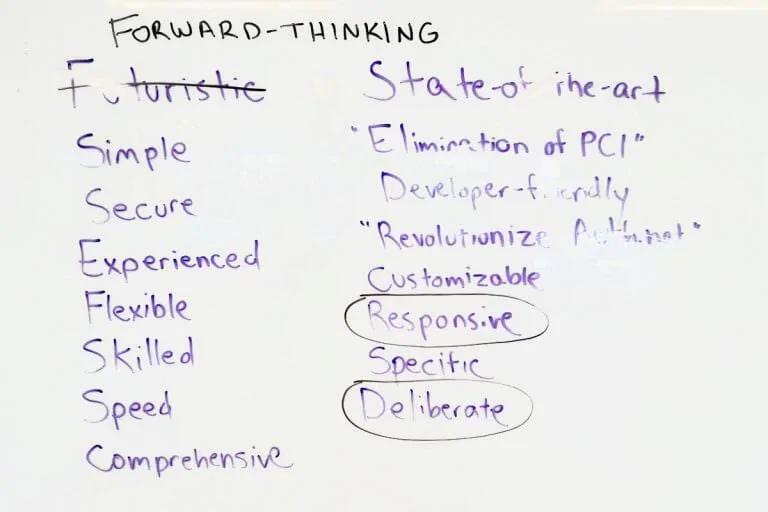 FORWARD-THINKING
Futuristic
Simple
Secure
Experienced
Flexible
Skilled
Speed
Comprehensive
State-of the-art
"Elimination of PCI"
Developer-friendly
"Revolutionize
Customizable
Responsive
Specific
Deliberate